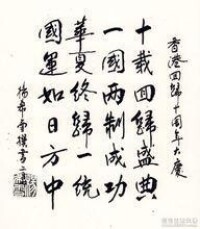 香港回歸十周年大慶
十載回歸盛典
一國兩制成功
華夏終歸一統
國運如日方中